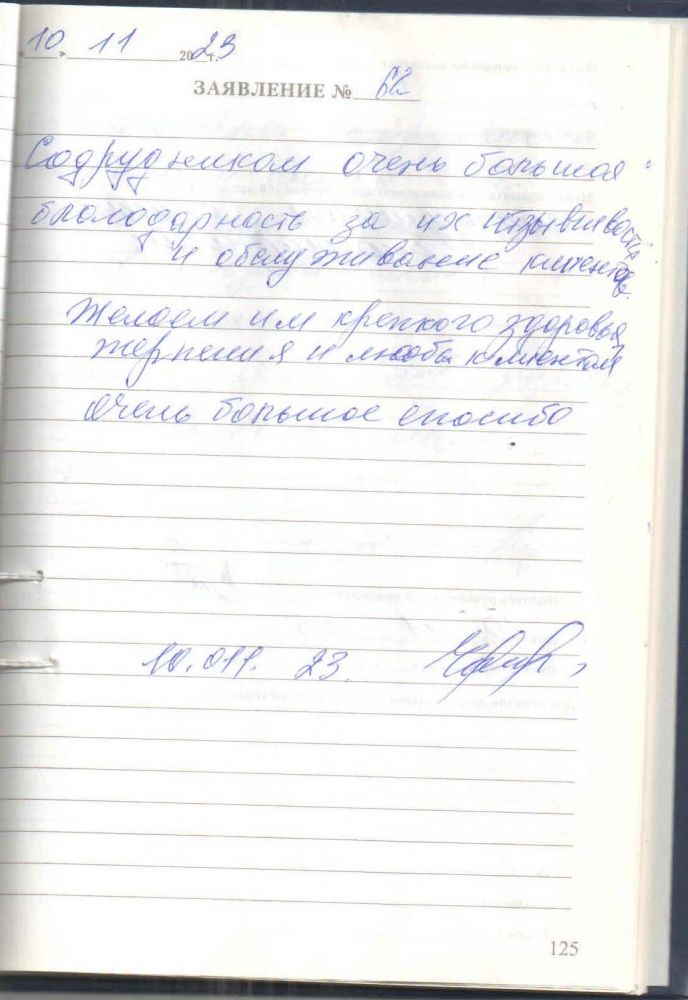 10 11 2023 г.
ЗАЯВЛЕНИЕ № 62
Содрудником очень большая
благодарность за их
и обслуживание клиентов.
Желаем им крепкого здоровья
терпения и любви клиентам
очень большое спосибо
10.011. 23.
125